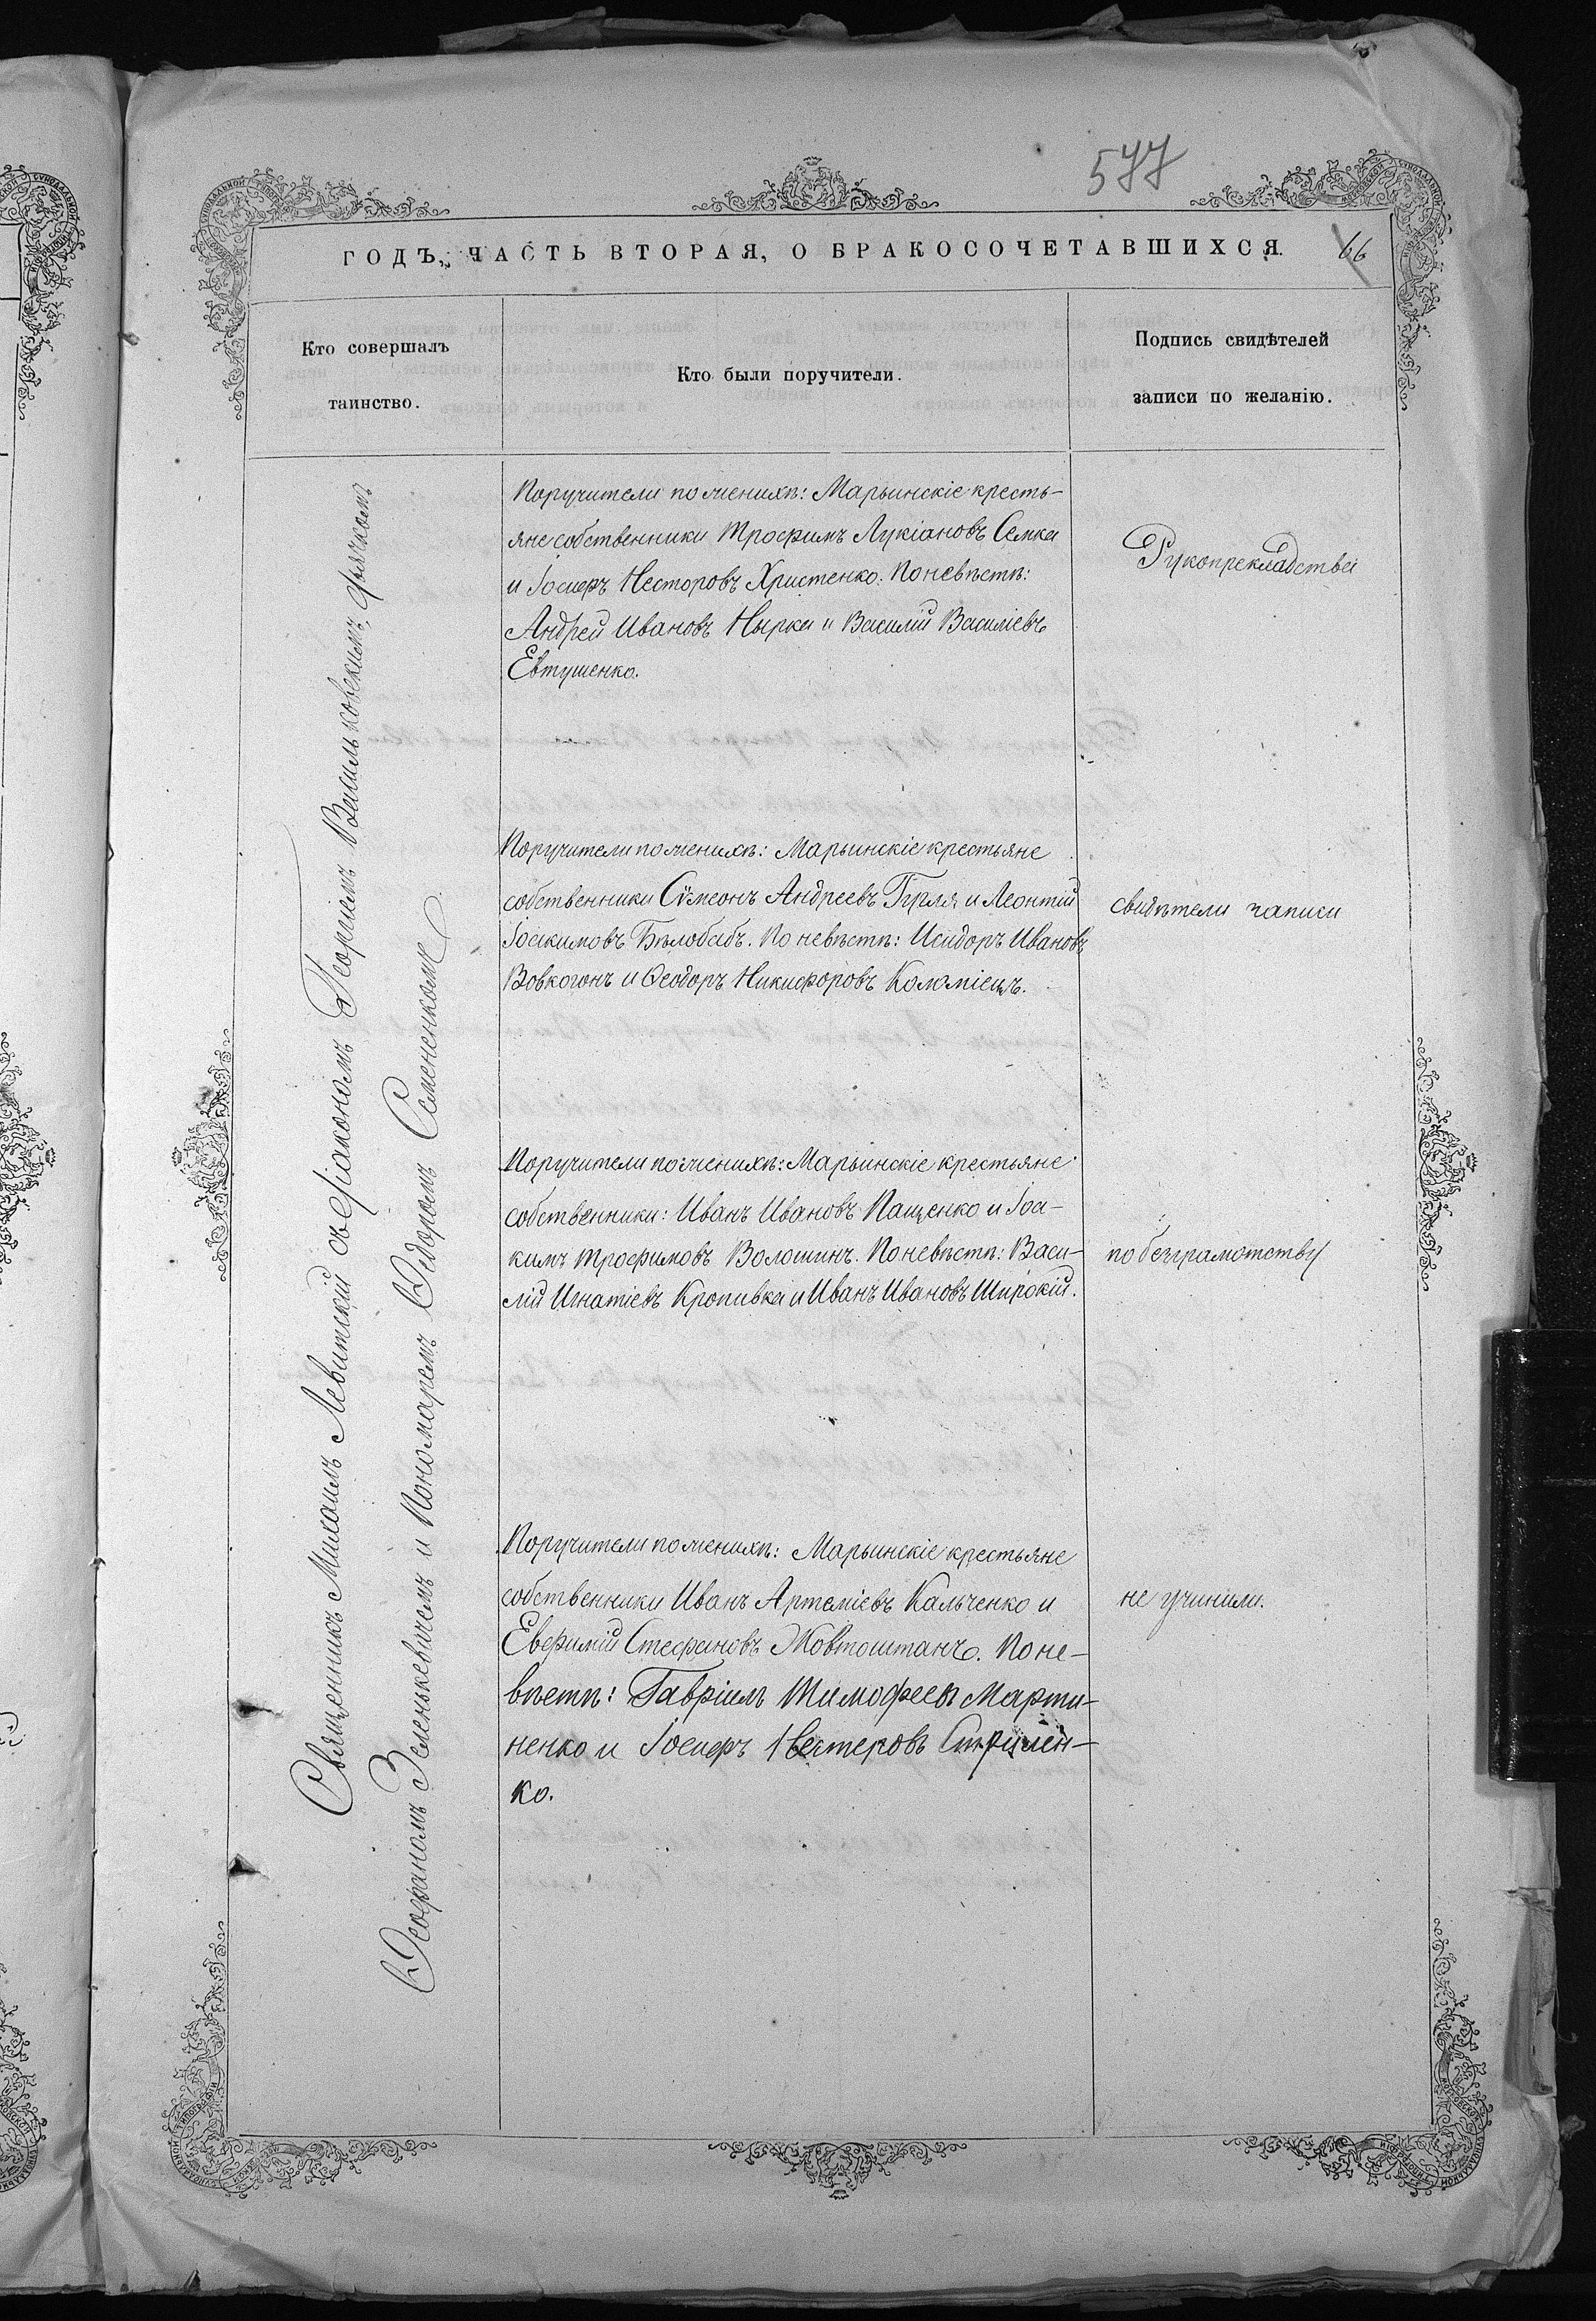 577
ГОДЪ, ЧАСТЬ ВТОРАЯ, О БРАКОСОЧЕТАВШИХСЯ.
66
Кто совершалъ
таинство.
Кто были поручители.
Подпись свидѣтелей
записи по желанію.
Священникъ Михаилъ Левитскій съ Діакономъ Георгіемъ Васильковскимъ, Дьячкомъ
Ѳеофаномъ Зеленкевичемъ и Пономаремъ Ѳедоромъ Семененкомъ
Поручители по женихѣ: Марьинскіе кресть-
яне собственники Трофимъ Лукіановъ Семка
и Іосифъ Несторовъ Христенко. По невѣстѣ:
Андрей Ивановъ Нырка и Василій Василіевъ
Евтушенко.
Рукоприкладства
Поручители по женихѣ: Марьинскіе крестьяне
собственники Сѵмеонъ Андреевъ Гирля и Леонтій
Іоакимовъ Бѣлобабъ. По невѣстѣ: Исидоръ Ивановъ
Вовкогонъ и Ѳеодоръ Никифоровъ Коломіецъ.
свидѣтели записи
Поручители по женихѣ: Марьинскіе крестьяне
собственники: Иванъ Ивановъ Пащенко и Іоа-
кимъ Трофимовъ Волошинъ. По невѣстѣ: Васи-
лій Игнатіевъ Кропивка и Иванъ Ивановъ Широкій.
по безграмотству
Поручители по женихѣ: Марьинскіе крестьяне
собственники Иванъ Артеміевъ Кальченко и
Евфимій Стефановъ Жовтоштанъ. По не-
вѣстѣ: Гавріилъ Тимофеевъ Марти-
ненко и Іосифъ Нестеровъ
ко.
не учинили.